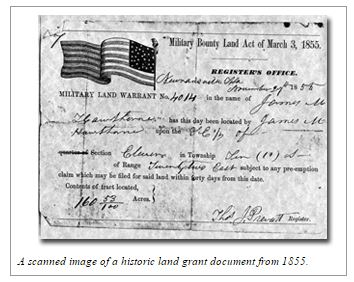 Military Bounty Land Act of March 3, 1855.
REGISTER'S OFFICE.
November 1856
MILITARY LAND WARRANT No. 4014 in the name of
James M
Hawthorne has this day been located by James M
Hawthorne upon the S E ¼ of
quarter of Section Eleven in Township Ten (10) S
of Range Twenty two East subject to any pre-emption
claim which may be filed for said land within forty days from this date.
Contents of tract located,
160 53/100 Acres.
Thos. J. Register.
A scanned image of a historic land grant document from 1855.